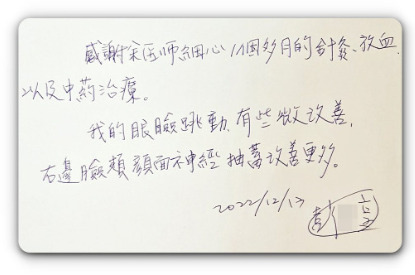 感謝宋医师細心1個多月的針灸、放血
以及中药治療。
我的眼瞼跳動有些微改善,
右邊臉頰顏面神經抽蓄改善更多。
2022/12/13
彭